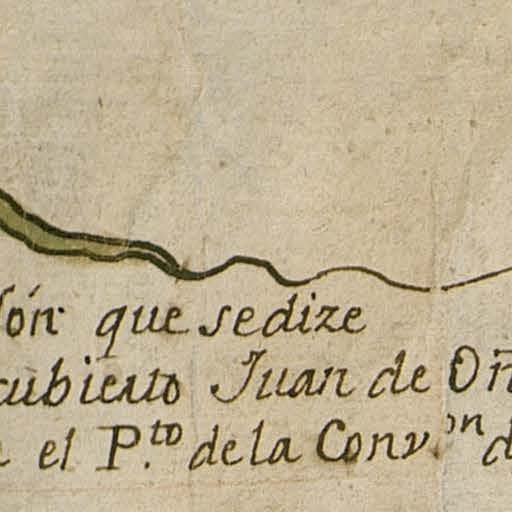 ón que sedize
cubierto Juan de Oñ
el P.to de la Conv.on d